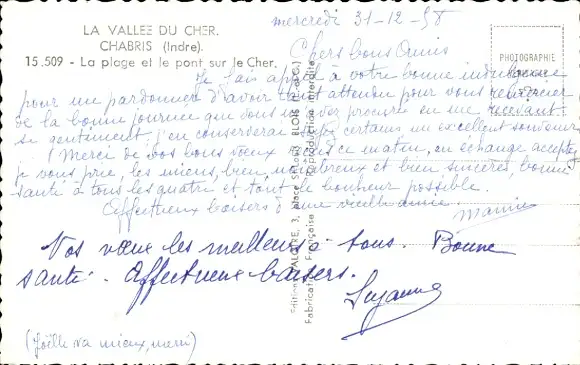 LA VALLEE DU CHER.
CHABRIS (Indre).
15.509 - La plage et le pont sur le Cher.
PHOTOGRAPHIE
mercredi 31-12-58
Chers bons Amis
Je fais appel à votre bonne indulgence
pour me pardonner d'avoir tant attendu pour vous remercier
de la bonne journée que vous m'avez procurée en me recevant
si gentiment. j'en conserverai certains un excellent souvenir
Merci de vos bons vœux ce matin, en échange acceptez
je vous prie, les miens, bien nombreux et bien sincères, bonne
santé à tous les quatre et tout le bonheur possible.
Affectueux baisers d'une vieille amie.
Mamie
Vos vœux les meilleurs à tous. Bonne
santé. Affectueux baisers.
Suzanne
(Joëlle va mieux, merci)
Reproduction interdite
Fabrication Française